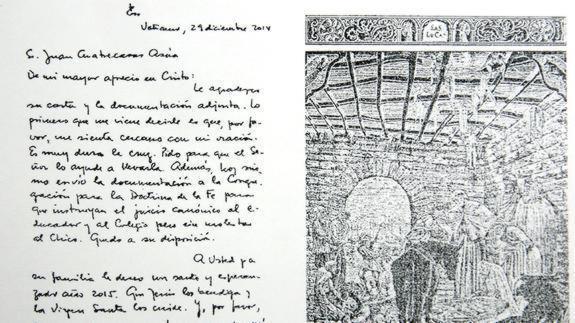 Vaticano, 29 diciembre 2014
S. Juan Cuatrecasas Asúa
De mi mayor aprecio en Cristo:
Le agradezco
su carta y la documentación adjunta. Lo
primero que me viene decirle es que, por fa-
vor, me sienta cercano con mi oración.
Es muy dura la cruz. Pido para que el Se-
ñor lo ayude a llevarla. Además, hoy mis-
mo envío la documentación a la Congre-
gación para la Doctrina de la Fe para
que instruyan el juicio canónico al e-
ducador y al Colegio pero sin molestar
al Chico. Quedo a su disposición.
A Usted y a
su familia le deseo un santo y esperan-
zado año 2015. Que Jesús los bendiga y
la Virgen Santa los cuide. Y, por favor,